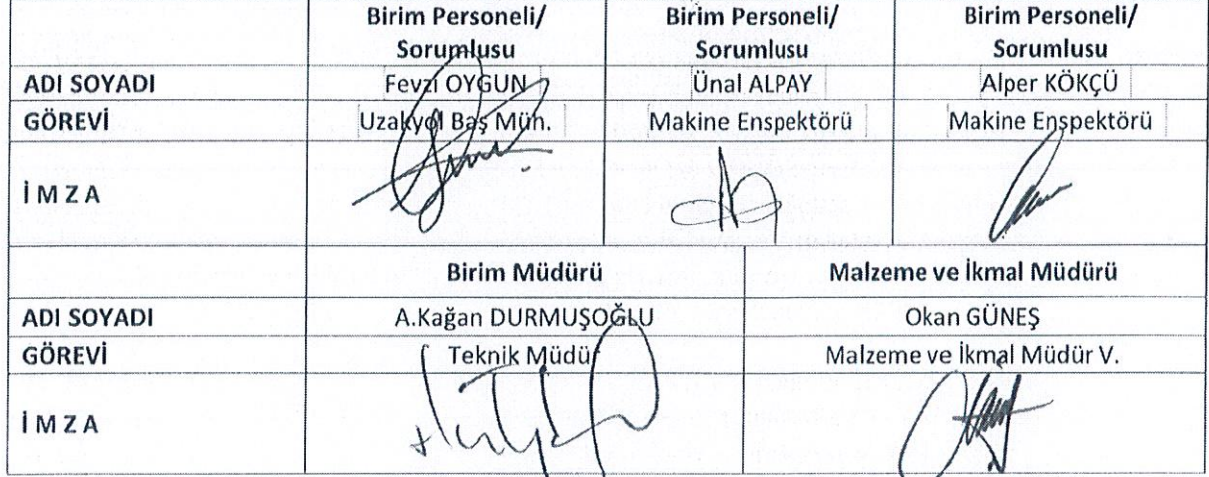 Birim Personeli/ Birim Personeli/ Birim Personeli/
Sorumlusu Sorumlusu Sorumlusu
ADI SOYADI Fevzi OYGUN Ünal ALPAY Alper KÖKÇÜ
GÖREVİ Uzakyol Baş Müh. Makine Enspektörü Makine Enspektörü
İ M Z A
Birim Müdürü Malzeme ve İkmal Müdürü
ADI SOYADI A.Kağan DURMUŞOĞLU Okan GÜNEŞ
GÖREVİ Teknik Müdür Malzeme ve İkmal Müdür V.
İ M Z A